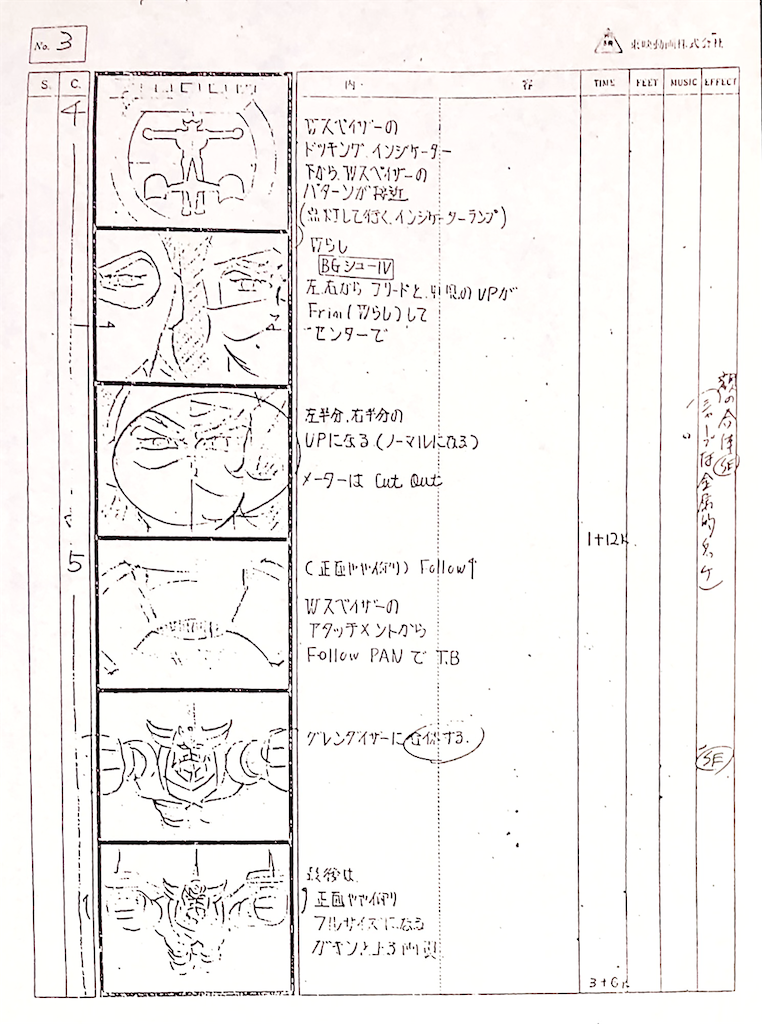 No. 3
東映動画株式会社
S. C. 内 容 TIME FEET MUSIC EFFECT
4
Wスペイザーの
ドッキング インジケーター
下から、Wスペイザーの
パターンが接近
(点灯して行く、インジケーターランプ)
Wらし
BGシューIV
左右から フリードと、 のUPが
Frin(Wらし)して
センターで
左半分、右半分の
UPになる(ノーマルになる)
メーターは Cut Out
額の合体
SE
1+12K
5
(正面やや仰り) Follow↑
Wスペイザーの
アタッチメントから
Follow PAN で T.B
グレンダイザーに合体する.
SE
最後は、
正面やや仰り
フルサイズになる
ガキンと
3+0K